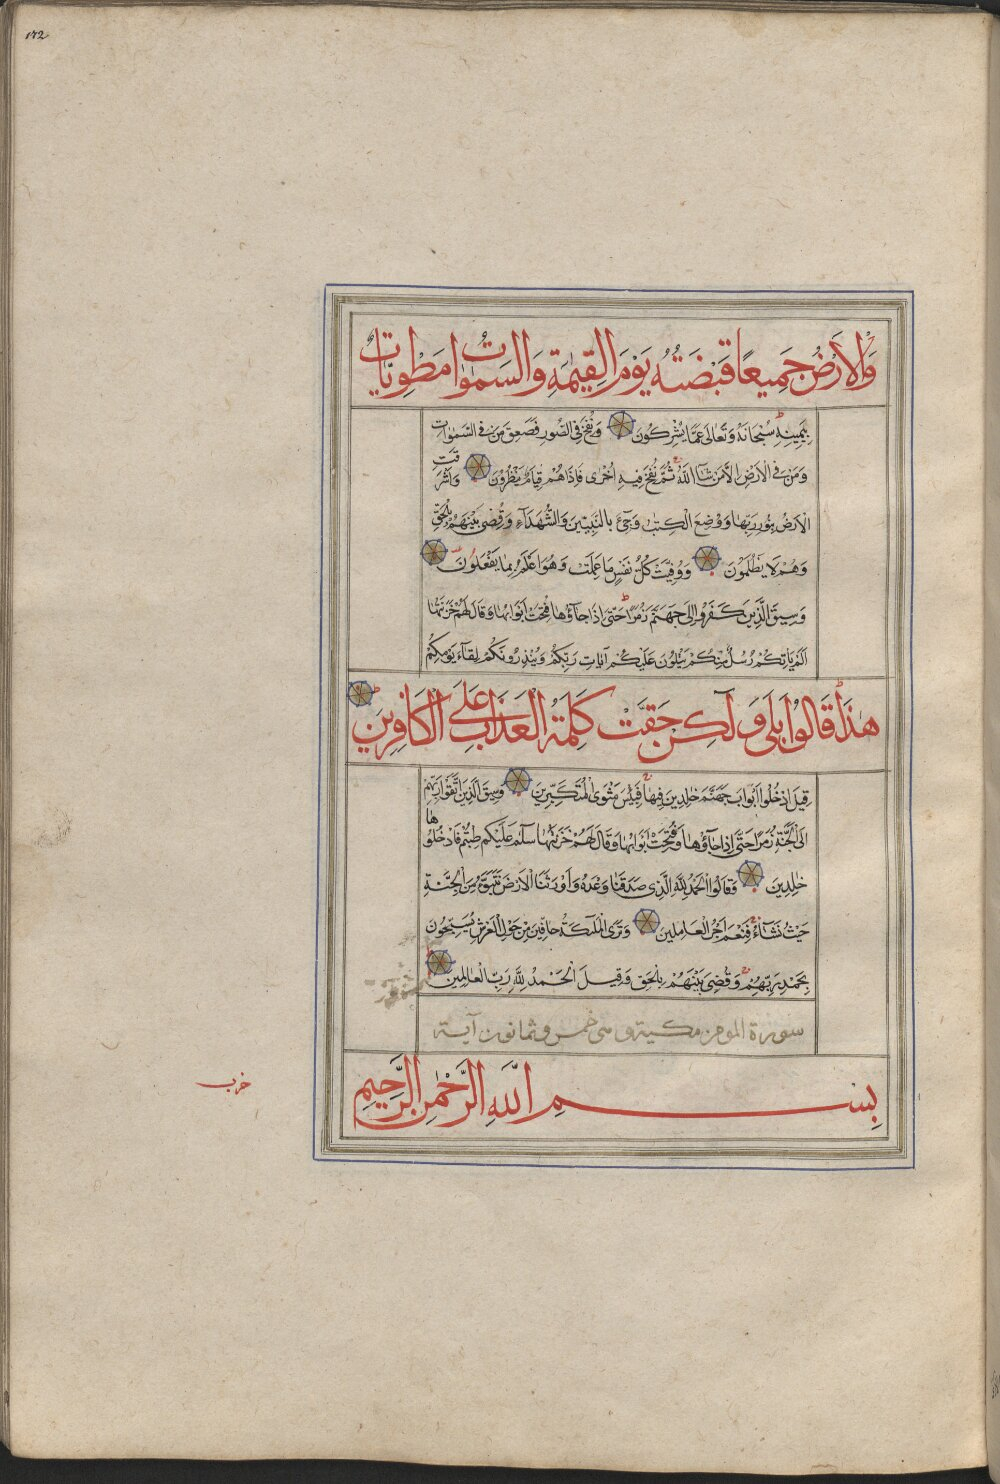 ۱۳۲
وَالْاَرْضُ جَمِيعًا قَبْضَتُهُ يَوْمَ الْقِيٰمَةِ وَالسَّمٰوَاتُ مَطْوِيَّاتٌ
بِيَمِينِهِ سُبْحَانَهُ وَتَعَالَى عَمَّا يُشْرِكُونَ وَنُفِخَ فِي الصُّورِ فَصَعِقَ مَنْ فِي السَّمٰوَاتِ
وَمَنْ فِي الْاَرْضِ اِلَّا مَنْ شَآءَ اللّٰهُ ثُمَّ نُفِخَ فِيهِ اُخْرٰى فَاِذَا هُمْ قِيَامٌ يَنْظُرُونَ وَاَشْرَقَتِ
الْاَرْضُ بِنُورِ رَبِّهَا وَوُضِعَ الْكِتٰبُ وَجِىءَ بِالنَّبِيّٖنَ وَالشُّهَدَآءِ وَقُضِىَ بَيْنَهُمْ بِالْحَقِّ
وَهُمْ لَا يُظْلَمُونَ وَوُفِّيَتْ كُلُّ نَفْسٍ مَا عَمِلَتْ وَهُوَ اَعْلَمُ بِمَا يَفْعَلُونَ
وَسِيقَ الَّذِينَ كَفَرُوا اِلٰى جَهَنَّمَ زُمَرًا حَتّٰى اِذَا جَآؤُهَا فُتِحَتْ اَبْوَابُهَا وَقَالَ لَهُمْ خَزَنَتُهَا
اَلَمْ يَاْتِكُمْ رُسُلٌ مِنْكُمْ يَتْلُونَ عَلَيْكُمْ آيَاتِ رَبِّكُمْ وَيُنْذِرُونَكُمْ لِقَآءَ يَوْمِكُمْ
هٰذَا قَالُوا بَلٰى وَلٰكِنْ حَقَّتْ كَلِمَةُ الْعَذَابِ عَلَى الْكَافِرِينَ
قِيلَ ادْخُلُوا اَبْوَابَ جَهَنَّمَ خٰلِدِينَ فِيهَا فَبِئْسَ مَثْوَى الْمُتَكَبِّرِينَ وَسِيقَ الَّذِينَ اتَّقَوْا رَبَّهُمْ
اِلَى الْجَنَّةِ زُمَرًا حَتّٰى اِذَا جَآؤُهَا وَفُتِحَتْ اَبْوَابُهَا وَقَالَ لَهُمْ خَزَنَتُهَا سَلٰمٌ عَلَيْكُمْ طِبْتُمْ فَادْخُلُوهَا
خٰلِدِينَ وَقَالُوا الْحَمْدُ لِلّٰهِ الَّذِى صَدَقَنَا وَعْدَهُ وَاَوْرَثَنَا الْاَرْضَ نَتَبَوَّءُ مِنَ الْجَنَّةِ
حَيْثُ نَشَآءُ فَنِعْمَ اَجْرُ الْعَامِلِينَ وَتَرَى الْمَلٰٓئِكَةَ حَافِّينَ مِنْ حَوْلِ الْعَرْشِ يُسَبِّحُونَ
بِحَمْدِ رَبِّهِمْ وَقُضِىَ بَيْنَهُمْ بِالْحَقِّ وَقِيلَ الْحَمْدُ لِلّٰهِ رَبِّ الْعَالَمِينَ
سورة المومن مكية وهي خمس وثمانون آية
حزب
بِسْمِ اللّٰهِ الرَّحْمٰنِ الرَّحِيمِ